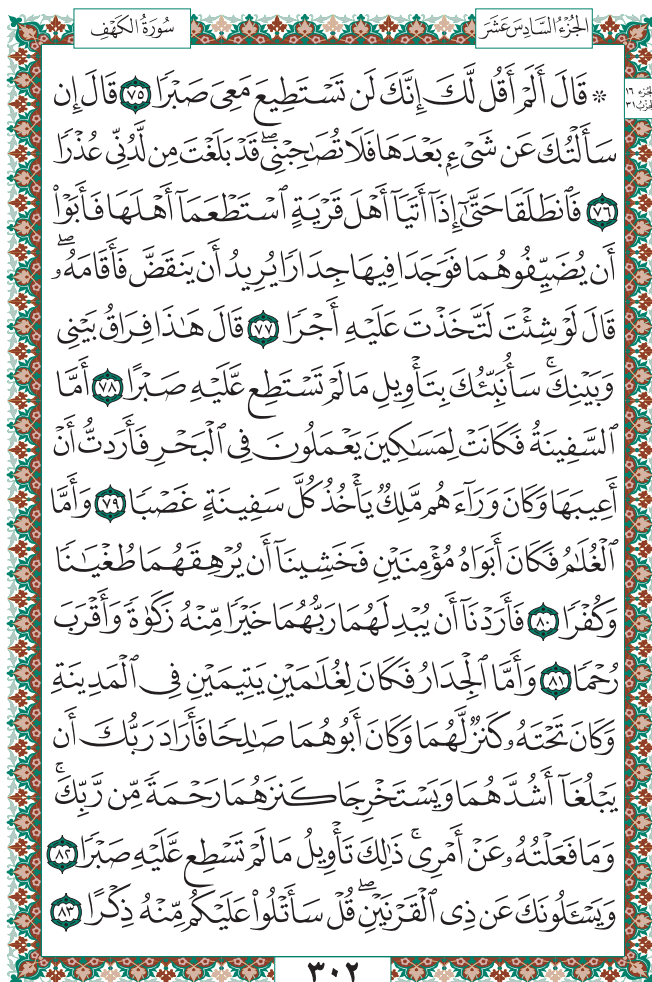 الجُزْءُ السَّادِسَ عَشَرَ
سُورَةُ الكَهْفِ
۞ قَالَ أَلَمْ أَقُل لَّكَ إِنَّكَ لَن تَسْتَطِيعَ مَعِىَ صَبْرًا ٧٥ قَالَ إِن
سَأَلْتُكَ عَن شَىْءٍۭ بَعْدَهَا فَلَا تُصَٰحِبْنِىۖ قَدْ بَلَغْتَ مِن لَّدُنِّى عُذْرًا
٧٦ فَٱنطَلَقَا حَتَّىٰٓ إِذَآ أَتَيَآ أَهْلَ قَرْيَةٍ ٱسْتَطْعَمَآ أَهْلَهَا فَأَبَوْا۟
أَن يُضَيِّفُوهُمَا فَوَجَدَا فِيهَا جِدَارًا يُرِيدُ أَن يَنقَضَّ فَأَقَامَهُۥۖ
قَالَ لَوْ شِئْتَ لَتَّخَذْتَ عَلَيْهِ أَجْرًا ٧٧ قَالَ هَٰذَا فِرَاقُ بَيْنِى
وَبَيْنِكَۚ سَأُنَبِّئُكَ بِتَأْوِيلِ مَا لَمْ تَسْتَطِع عَّلَيْهِ صَبْرًا ٧٨ أَمَّا
ٱلسَّفِينَةُ فَكَانَتْ لِمَسَٰكِينَ يَعْمَلُونَ فِى ٱلْبَحْرِ فَأَرَدتُّ أَنْ
أَعِيبَهَا وَكَانَ وَرَآءَهُم مَّلِكٌ يَأْخُذُ كُلَّ سَفِينَةٍ غَصْبًا ٧٩ وَأَمَّا
ٱلْغُلَٰمُ فَكَانَ أَبَوَاهُ مُؤْمِنَيْنِ فَخَشِينَآ أَن يُرْهِقَهُمَا طُغْيَٰنًا
وَكُفْرًا ٨٠ فَأَرَدْنَآ أَن يُبْدِلَهُمَا رَبُّهُمَا خَيْرًا مِّنْهُ زَكَوٰةً وَأَقْرَبَ
رُحْمًا ٨١ وَأَمَّا ٱلْجِدَارُ فَكَانَ لِغُلَٰمَيْنِ يَتِيمَيْنِ فِى ٱلْمَدِينَةِ
وَكَانَ تَحْتَهُۥ كَنزٌ لَّهُمَا وَكَانَ أَبُوهُمَا صَٰلِحًا فَأَرَادَ رَبُّكَ أَن
يَبْلُغَآ أَشُدَّهُمَا وَيَسْتَخْرِجَا كَنزَهُمَا رَحْمَةً مِّن رَّبِّكَۚ
وَمَا فَعَلْتُهُۥ عَنْ أَمْرِىۚ ذَٰلِكَ تَأْوِيلُ مَا لَمْ تَسْطِع عَّلَيْهِ صَبْرًا ٨٢
وَيَسْـَٔلُونَكَ عَن ذِى ٱلْقَرْنَيْنِۖ قُلْ سَأَتْلُوا۟ عَلَيْكُم مِّنْهُ ذِكْرًا ٨٣
٣٠٢